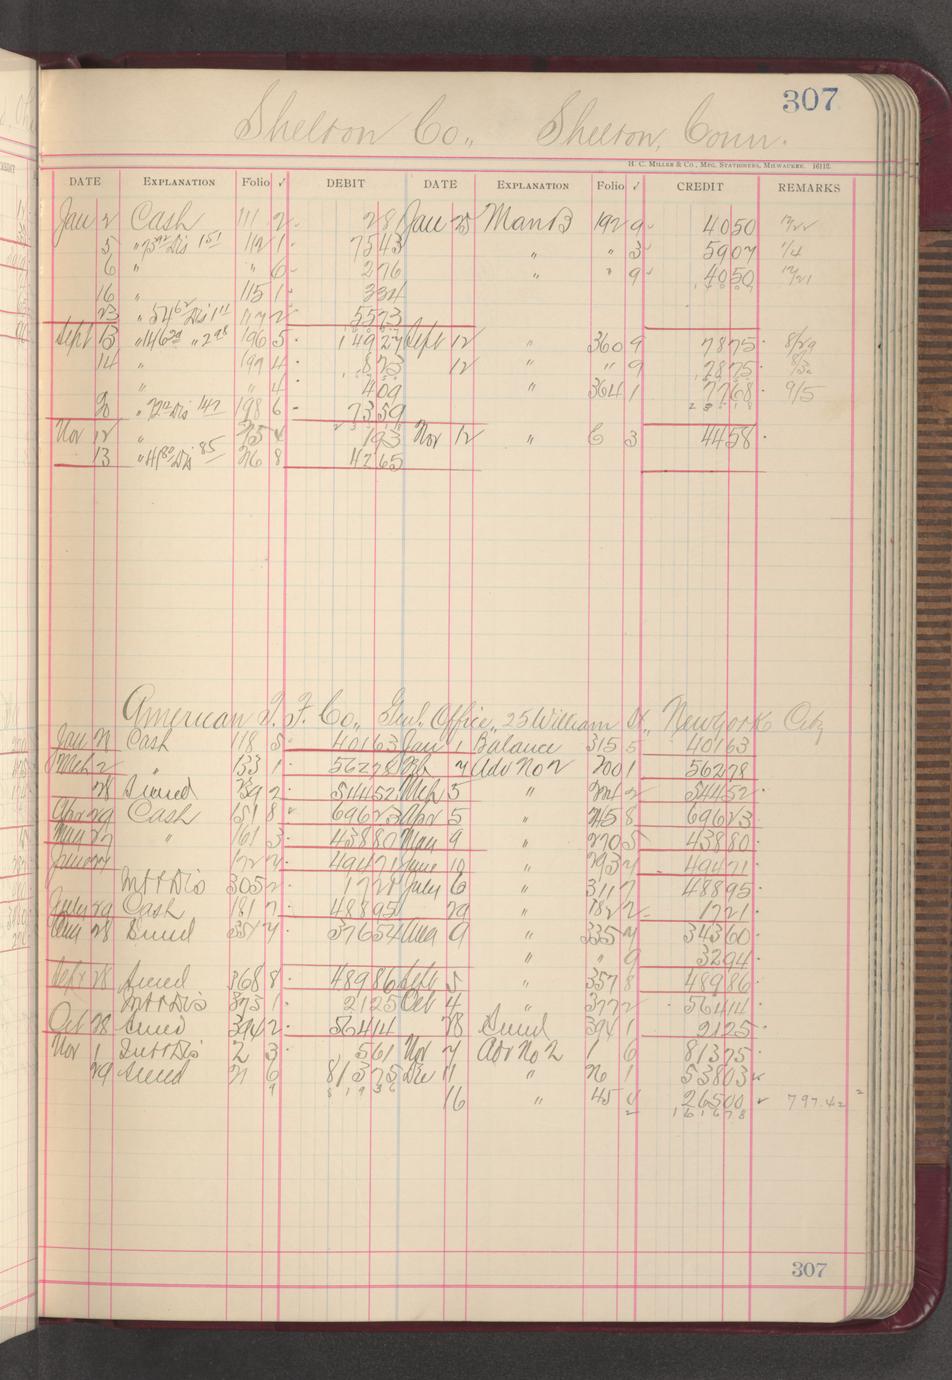 307
Shelton Co., Shelton, Conn.
H. C. Miller & Co., Mfg. Stationers, Milwaukee. 16112
DATE EXPLANATION Folio √ DEBIT DATE EXPLANATION Folio √ CREDIT REMARKS
Jan 2 Cash 111 2 281 Jan 25 Man B 192 9 4050 12/22
5 " 73 92 Dis 1 51 112 1 7543 " " 3 5907 1/4
6 " " 6 276 " " 9 4050 12/21
16 " 115 1 334
23 " 54 62 Dis 1 11 117 2 5573
Sept 13 " 146 29 " 2 98 196 5 14927 Sept 12 " 360 9 7875 8/29
14 " 197 4 875 12 " " 9 2875
" " 4 409 " 364 1 7768 9/5
20 " 72 12 Dis 1 47 198 6 7359
Nov 12 " 25 4 193 Nov 12 " 6 3 4458
13 " 41 80 Dis 85 26 8 4265
American T. F. Co., Genl. Office, 25 William St., New York City
Jan 27 Cash 118 5 40163 Jan 1 Balance 315 5 40163
Mch 2 " 133 1 56278 Feb 7 Adv No 2 200 1 56278
28 Sucred 239 2 54452 Mch 5 " 224 2 54452
Apr 29 Cash 151 8 69623 Apr 5 " 245 8 69623
May 27 " 161 3 43880 May 9 " 270 5 43880
June 27 172 7 49471 June 10 " 293 7 49471
Int & Dis 305 2 1721 July 6 " 311 7 48895
July 29 Cash 181 7 48895 29 " 182 2 1721
Aug 28 Sucred 351 7 37654 Aug 9 " 335 7 34360
" " 9 3294
Sept 28 Sucred 368 8 48986 Sept 5 " 357 8 48986
Int & Dis 373 1 2125 Oct 4 " 377 2 56414
Oct 28 Sucred 394 2 56414 28 Sucred 394 1 2125
Nov 1 Int & Dis 2 3 561 Nov 7 Adv No 2 1 6 81375
29 Sucred 21 6 81375 Dec 11 " 26 1 53803
16 " 45 4 26500 797.42
307